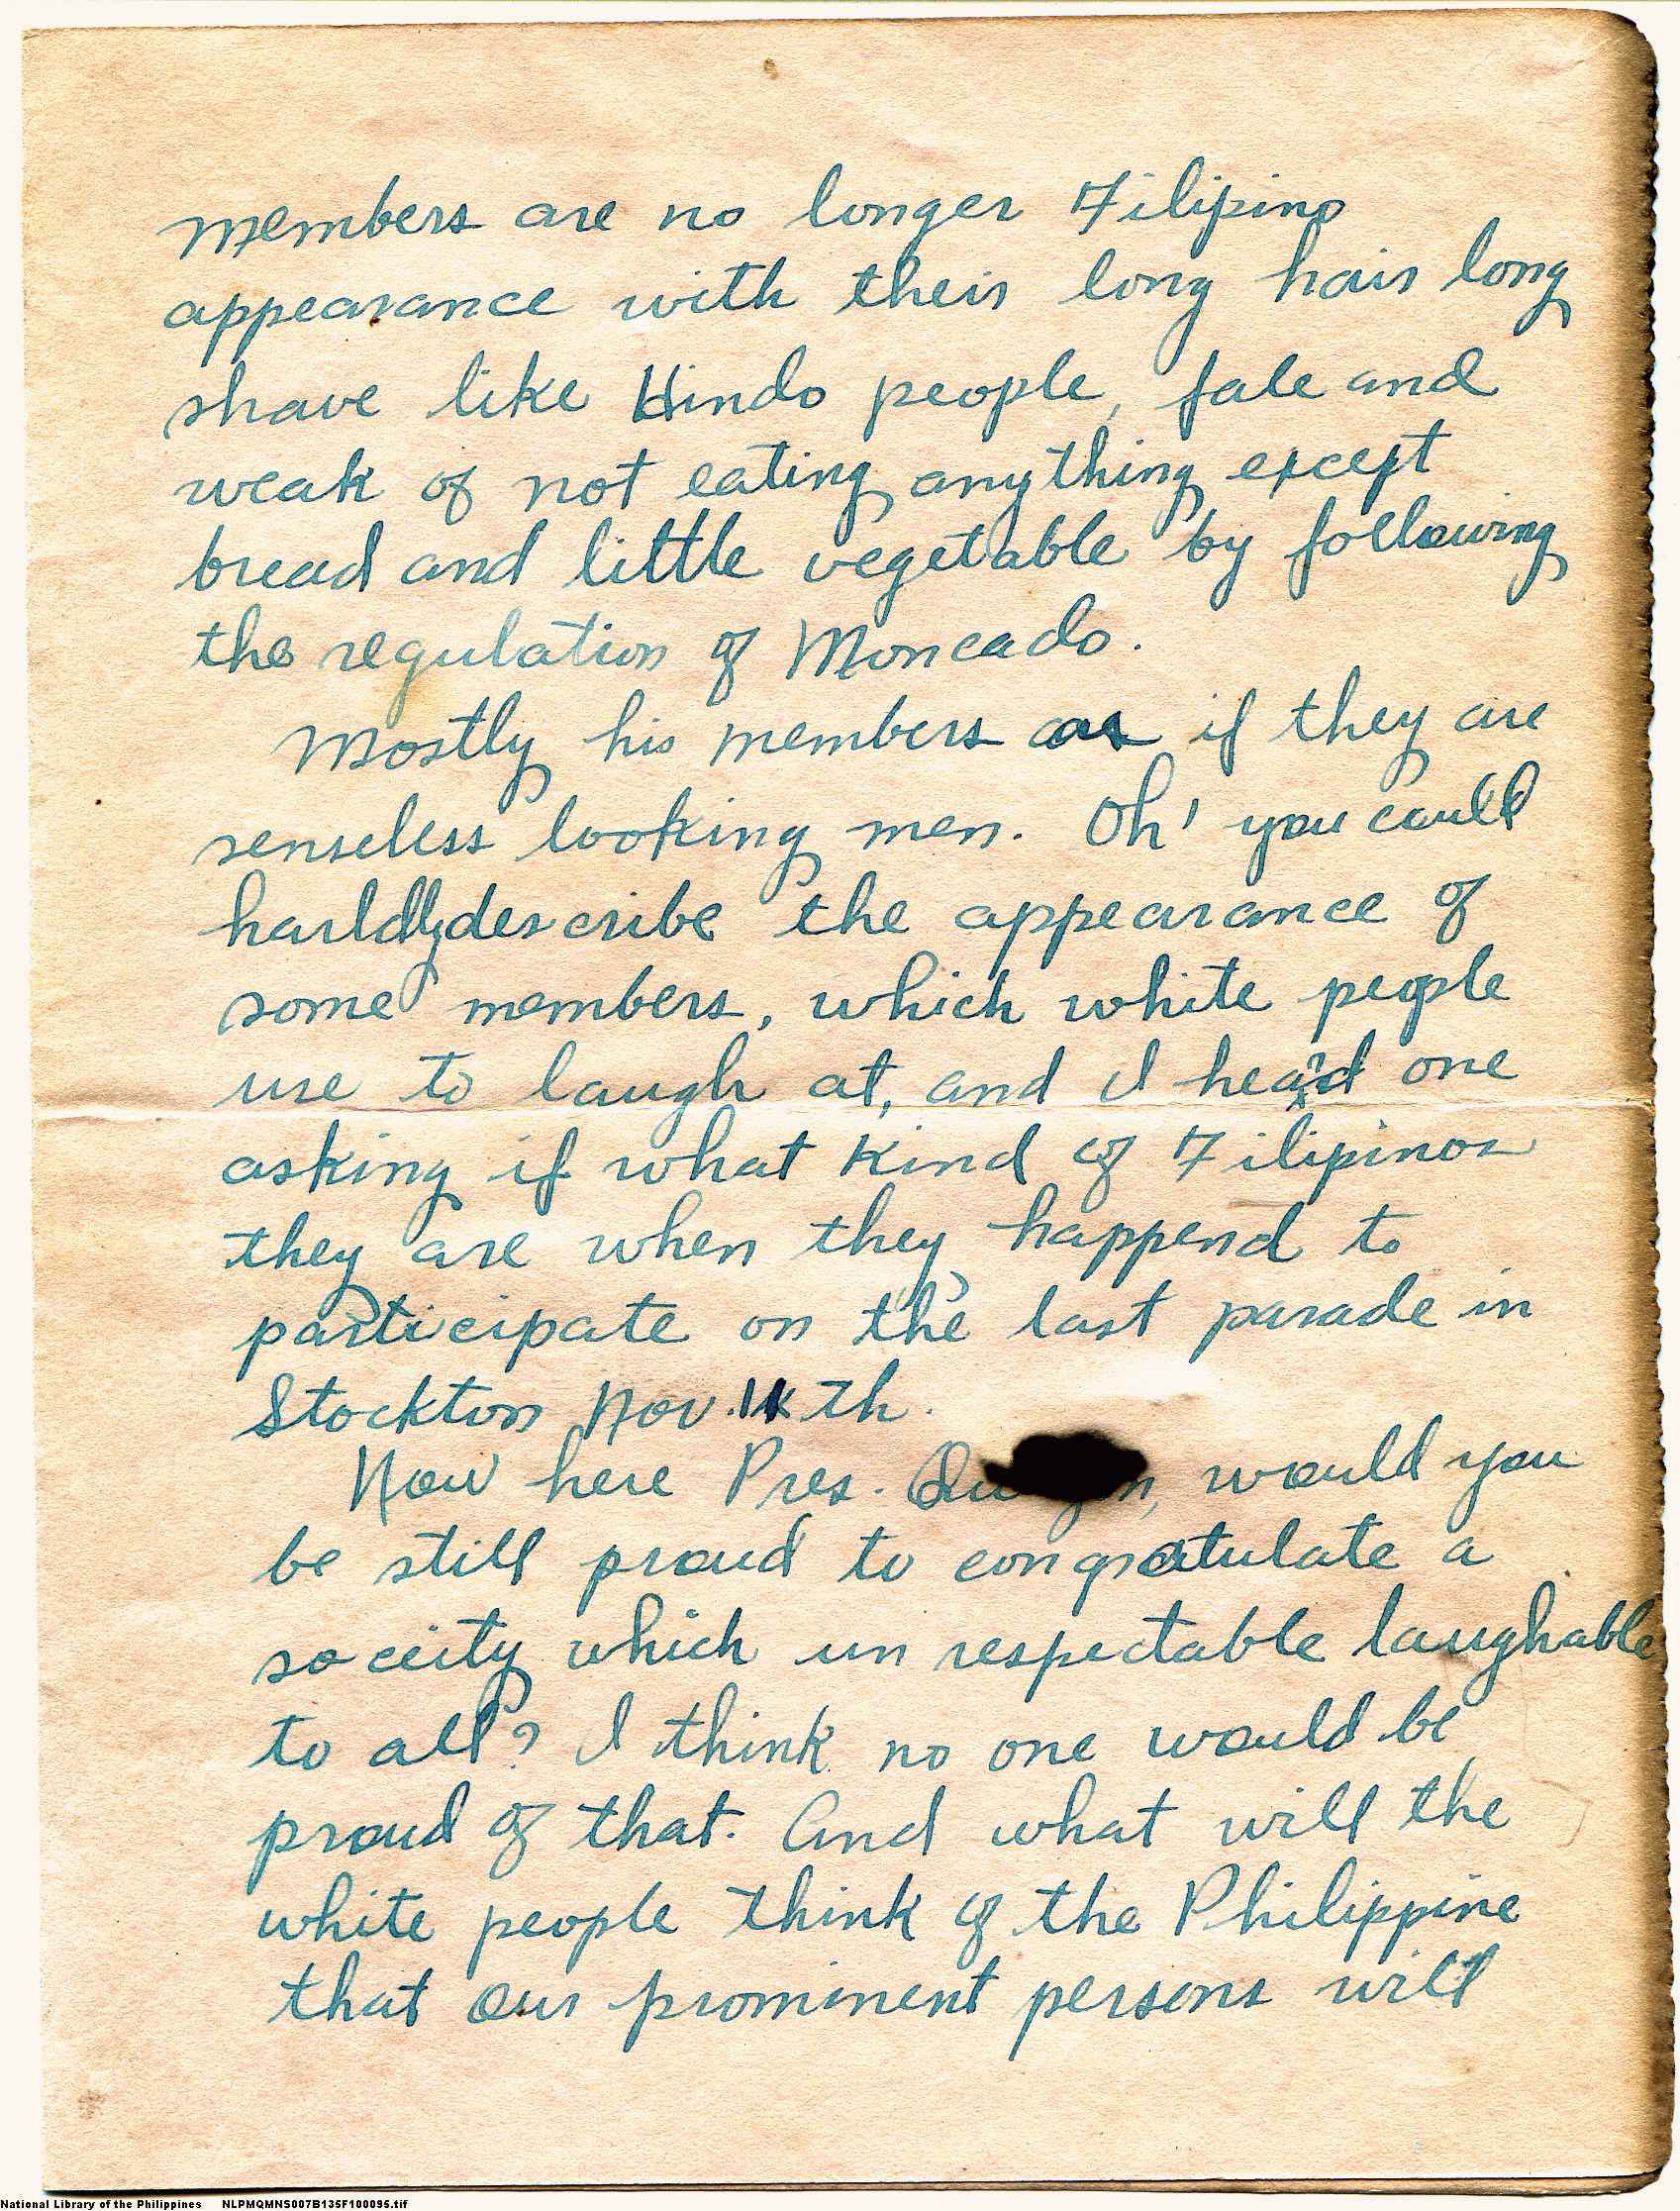 members are no longer Filipino
appearance with their long hair long
shave like Hindo people, fale and
weak of not eating anything except
bread and little vegetable by following
the regulation of Moncado.
Mostly his members as if they are
senseless looking men. Oh' you could
harldly describe the appearance of
some members, which white people
use to laugh at, and I heard one
asking if what kind of Filipinos
they are when they happend to
participate on the last parade in
Stockton Nov. 11th.
Now here Pres. would you
be still proud to congratulate a
soceity which un respectable laughable
to all? I think no one would be
proud of that. And what will the
white people think of the Philippine
that our prominent persons will
National Library of the Philippines NLPMQMNS007B135F100095.tif